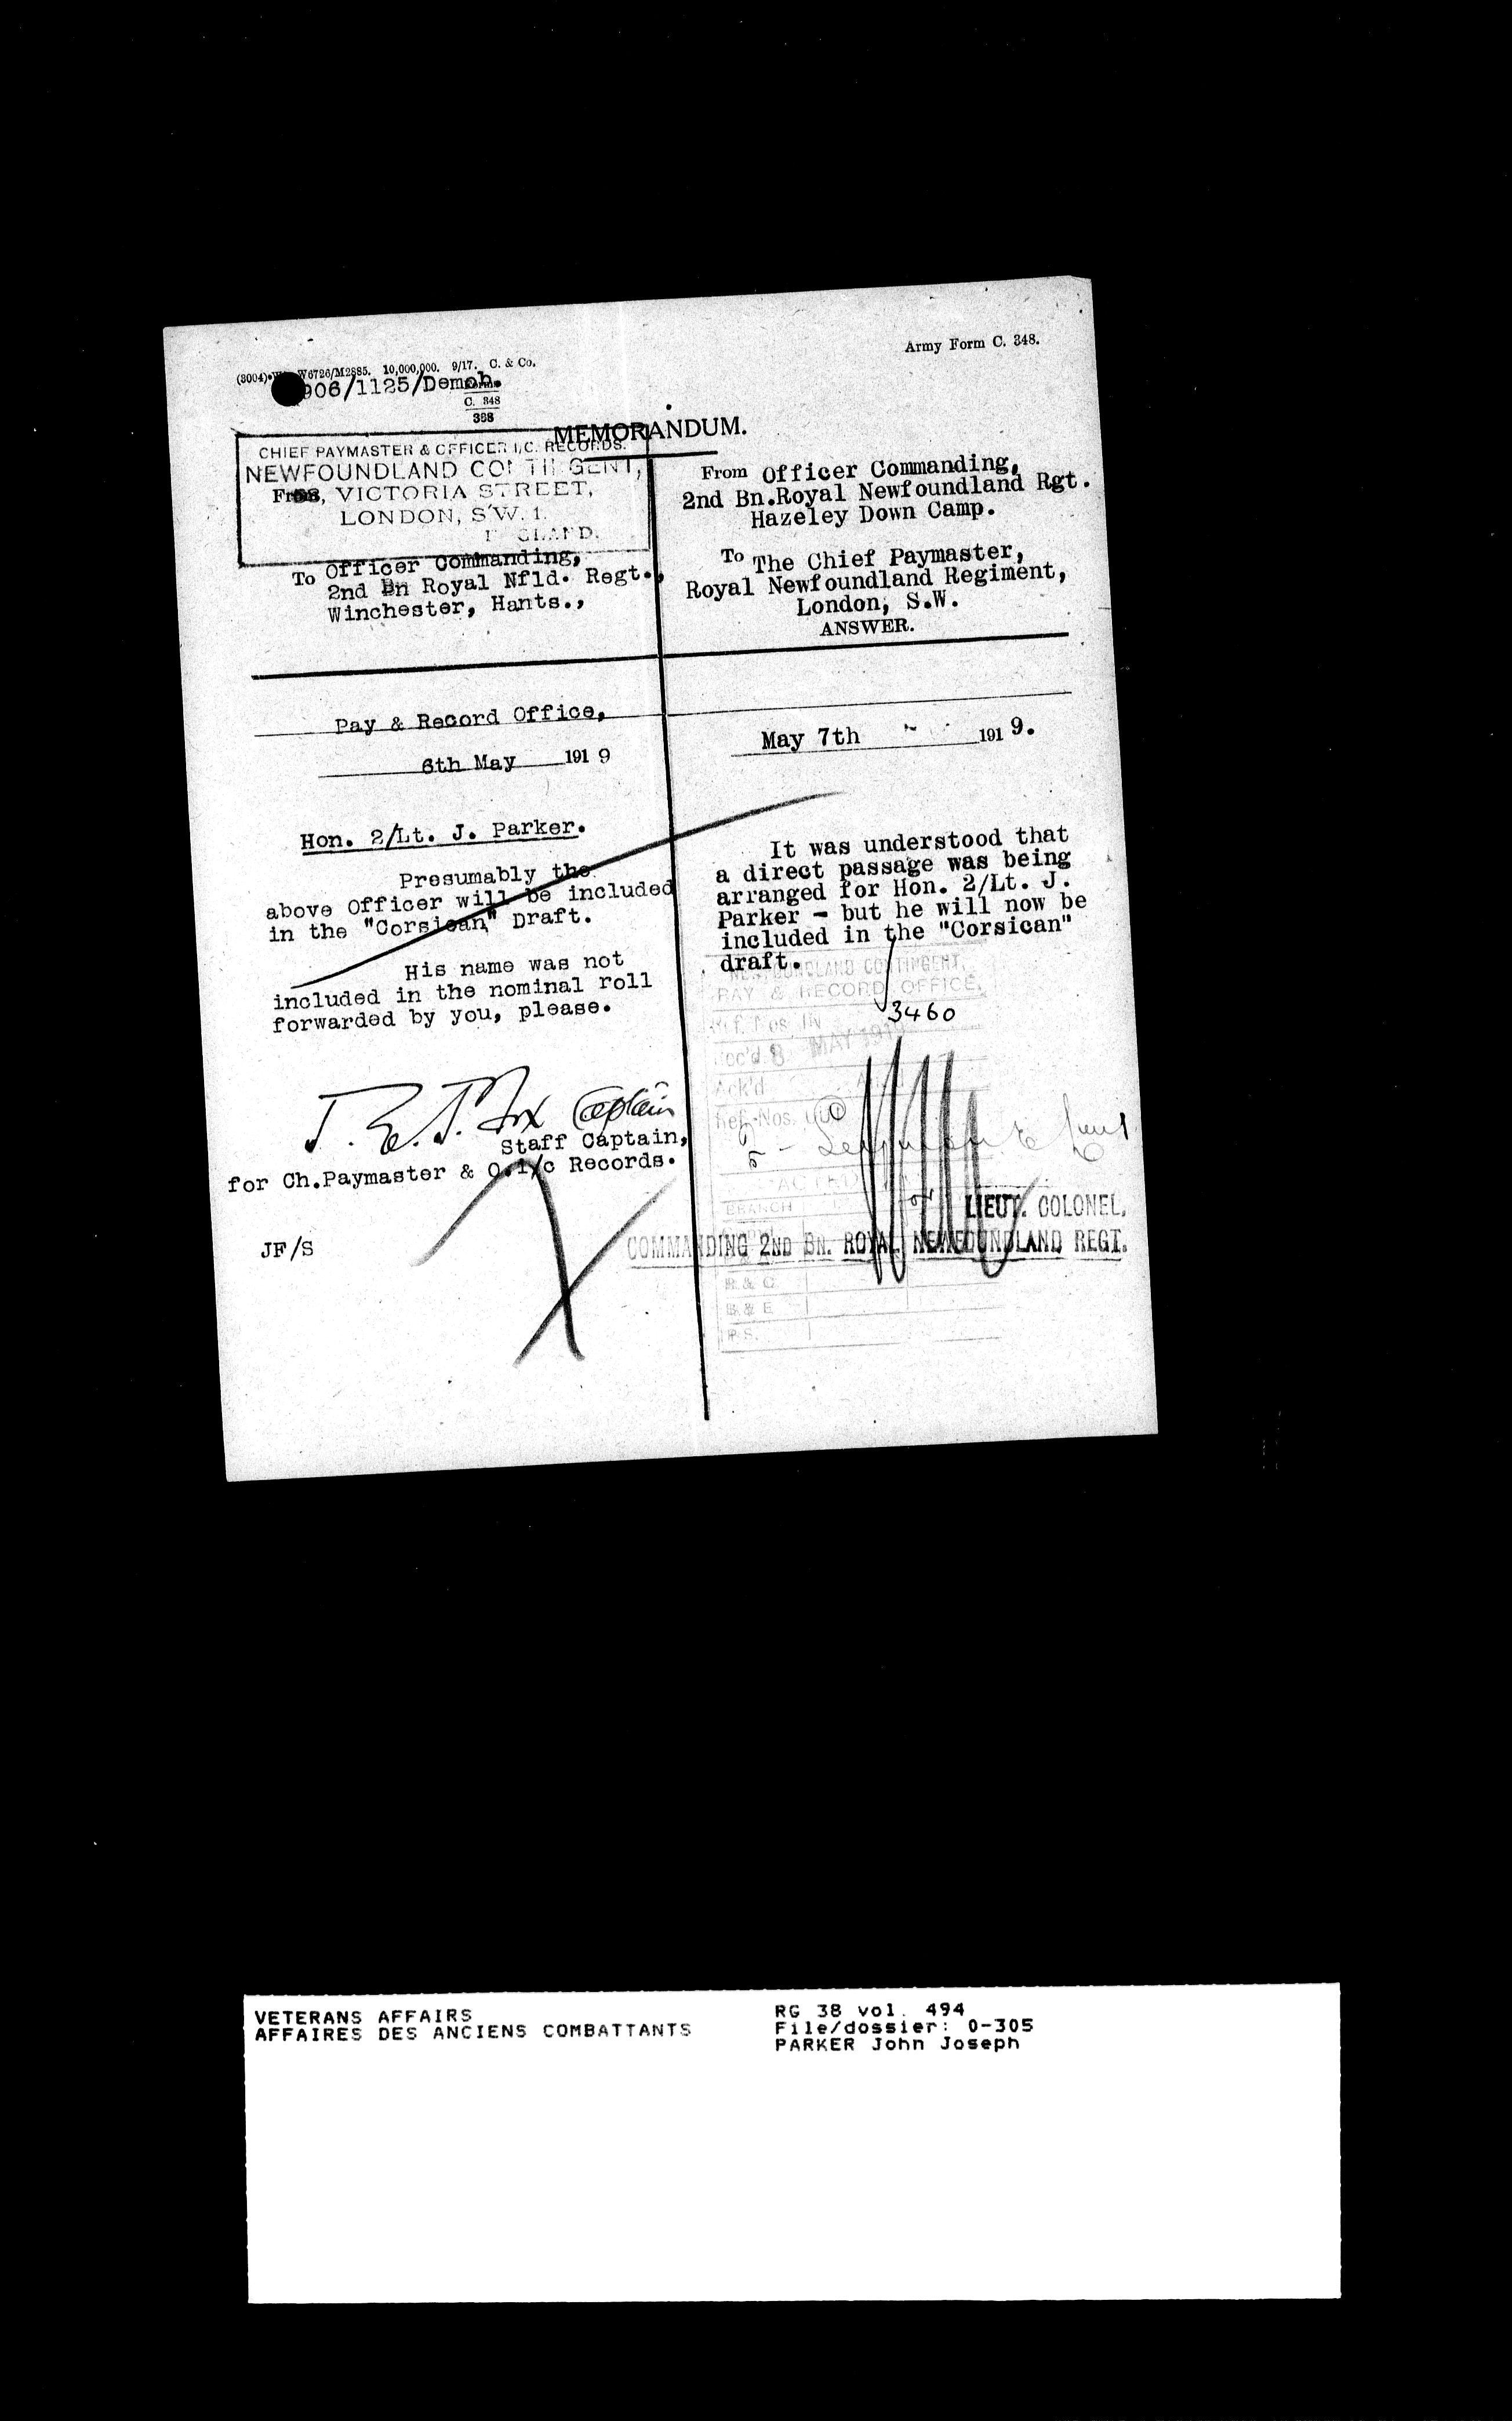 Army Form C. 348.
W6726/M2885. 10,000,000. 9/17. C. & Co.
906/1125/Demob.
C. 348
MEMORANDUM.
CHIEF PAYMASTER & OFFICER I/C. RECORDS.
NEWFOUNDLAND CONTINGENT,
From 58, VICTORIA STREET,
LONDON, S.W. 1.
ENGLAND.
To Officer Commanding,
2nd Bn Royal Nfld. Regt.,
Winchester, Hants.,
Pay & Record Office,
6th May 1919
Hon. 2/Lt. J. Parker.
Presumably the
above Officer will be included
in the "Corsican" Draft.
His name was not
included in the nominal roll
forwarded by you, please.
Captain
Staff Captain,
for Ch.Paymaster & O.i/c Records.
JF/S
From Officer Commanding,
2nd Bn.Royal Newfoundland Rgt.
Hazeley Down Camp.
To The Chief Paymaster,
Royal Newfoundland Regiment,
London, S.W.
ANSWER.
May 7th 1919.
It was understood that
a direct passage was being
arranged for Hon. 2/Lt. J.
Parker - but he will now be
included in the "Corsican"
draft.
NEWFOUNDLAND CONTINGENT,
PAY & RECORD OFFICE.
Ref. Nos. IN 3460
Rec'd 8 MAY 1919
Ack'd
Ref. Nos. OUT
BRANCH
for LIEUT. COLONEL.
COMMANDING 2ND BN. ROYAL NEWFOUNDLAND REGT.
VETERANS AFFAIRS
AFFAIRES DES ANCIENS COMBATTANTS
RG 38 vol. 494
File/dossier: 0-305
PARKER John Joseph